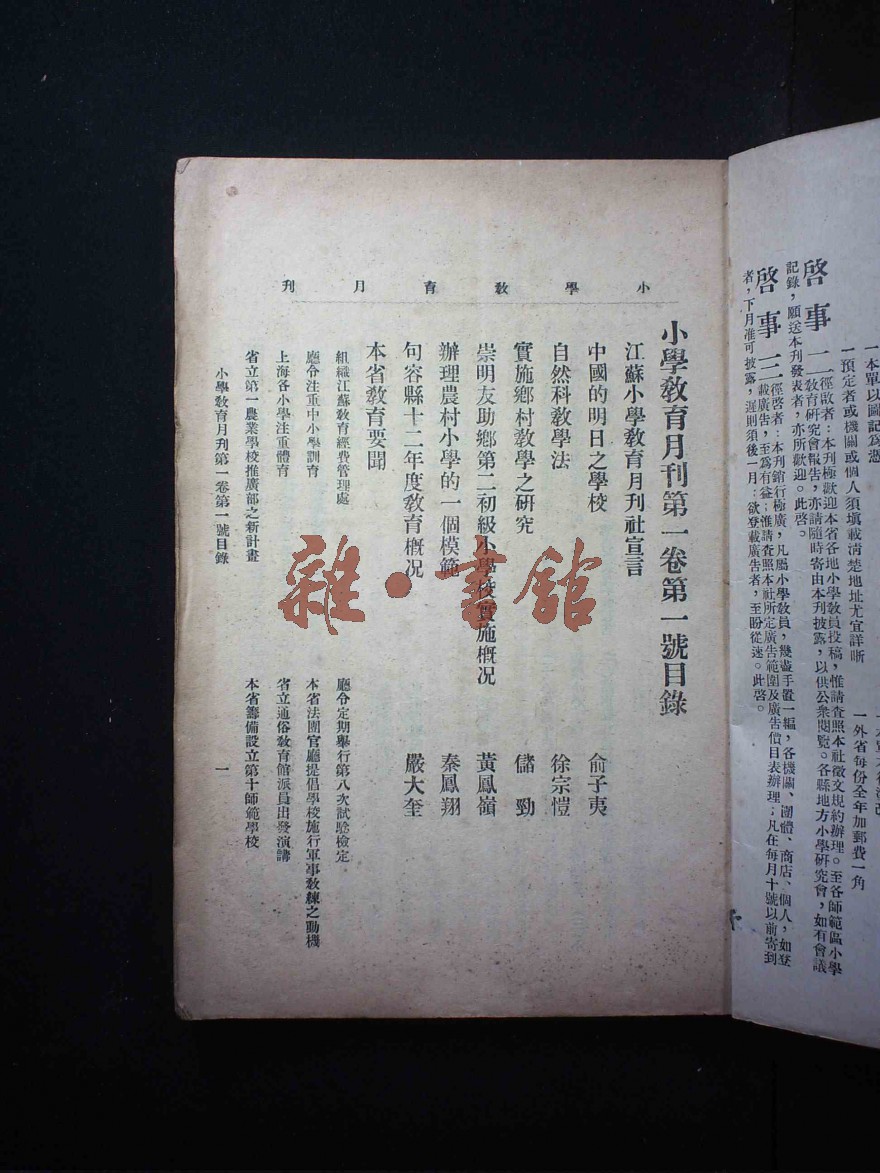 一本單以圖記爲憑
一預定者或機關或個人須填載清楚地址尤宜詳晰
一外省每份全年加郵費一角
啓事一
徑啟者：本刊極歡迎本省各地小學教員投稿，惟請查照本社徵文規約辦理。至各師範區小學
教育研究會報告，亦請隨時寄由本刊披露，以供公衆閱覽。各縣地方小學研究會，如有會議
記錄，願送本刊發表者，亦所歡迎。此啓。
啓事二
徑啓者：本刊銷行極廣，凡屬小學教員，幾盡手置一編，各機關、團體、商店、個人，如登
載廣告，至爲有益；惟請查照本社所定廣告範圍及廣告價目表辦理；凡在每月十號以前寄到
者，下月准可披露，遲則須後一月；欲登載廣告者，至盼從速。此啓。
小學教育月刊
小學教育月刊第一卷第一號目錄
江蘇小學教育月刊社宣言
中國的明日之學校 俞子夷
自然科教學法 徐宗愷
實施鄉村教學之研究 儲勁
崇明友助鄉第二初級小學校實施概况 黃鳳嶺
辦理農村小學的一個模範 秦鳳翔
句容縣十二年度教育概况 嚴大奎
本省教育要聞
組織江蘇教育經費管理處 廳令定期舉行第八次試驗檢定
廳令注重中小學訓育 本省法團官廳提倡學校施行軍事教練之動機
上海各小學注重體育 省立通俗教育館派員出發演講
省立第一農業學校推廣部之新計畫 本省籌備設立第十師範學校
小學教育月刊第一卷第一號目錄 一
雜·書館